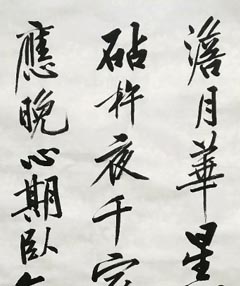 澹月華星
砧杵夜千家
應晚心期臥